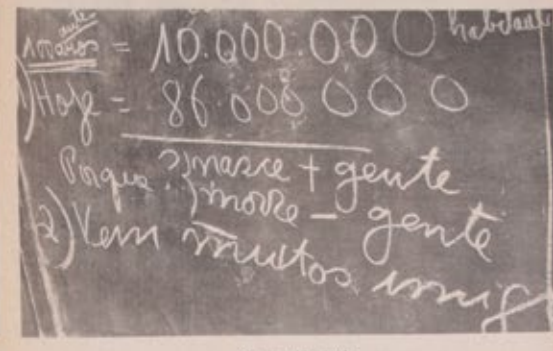 = 10.000.000
1) Hoje = 86.000 000
Porque? nasce + gente
morre - gente
2) Vem muitos imig